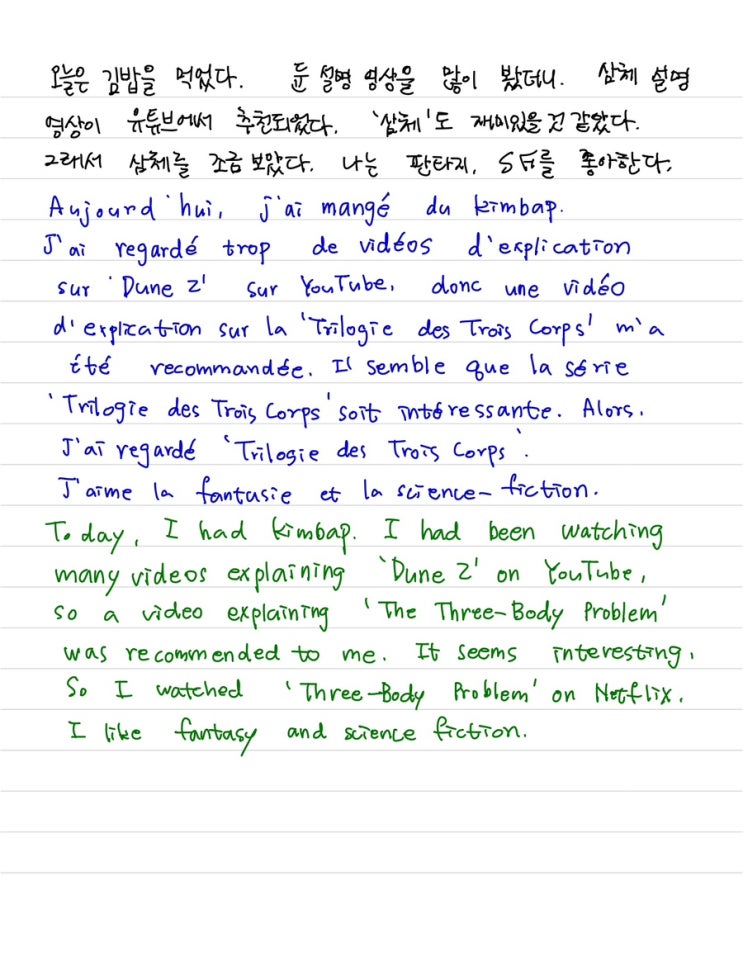 오늘은 김밥을 먹었다. 듄 설명 영상을 많이 봤더니. 삼체 설명
영상이 유튜브에서 추천되었다. '삼체'도 재미있을 것 같았다.
그래서 삼체를 조금 보았다. 나는 판타지, SF를 좋아한다.
Aujourd'hui, j'ai mangé du kimbap.
J'ai regardé trop de vidéos d'explication
sur 'Dune 2' sur YouTube, donc une vidéo
d'explication sur la 'Trilogie des Trois Corps' m'a
été recommandée. Il semble que la série
'Trilogie des Trois Corps' soit intéressante. Alors,
J'ai regardé 'Trilogie des Trois Corps'.
J'aime la fantasie et la science-fiction.
Today, I had kimbap. I had been watching
many videos explaining 'Dune 2' on YouTube,
so a video explaining 'The Three-Body Problem'
was recommended to me. It seems interesting,
So I watched 'Three-Body Problem' on Netflix.
I like fantasy and science fiction.